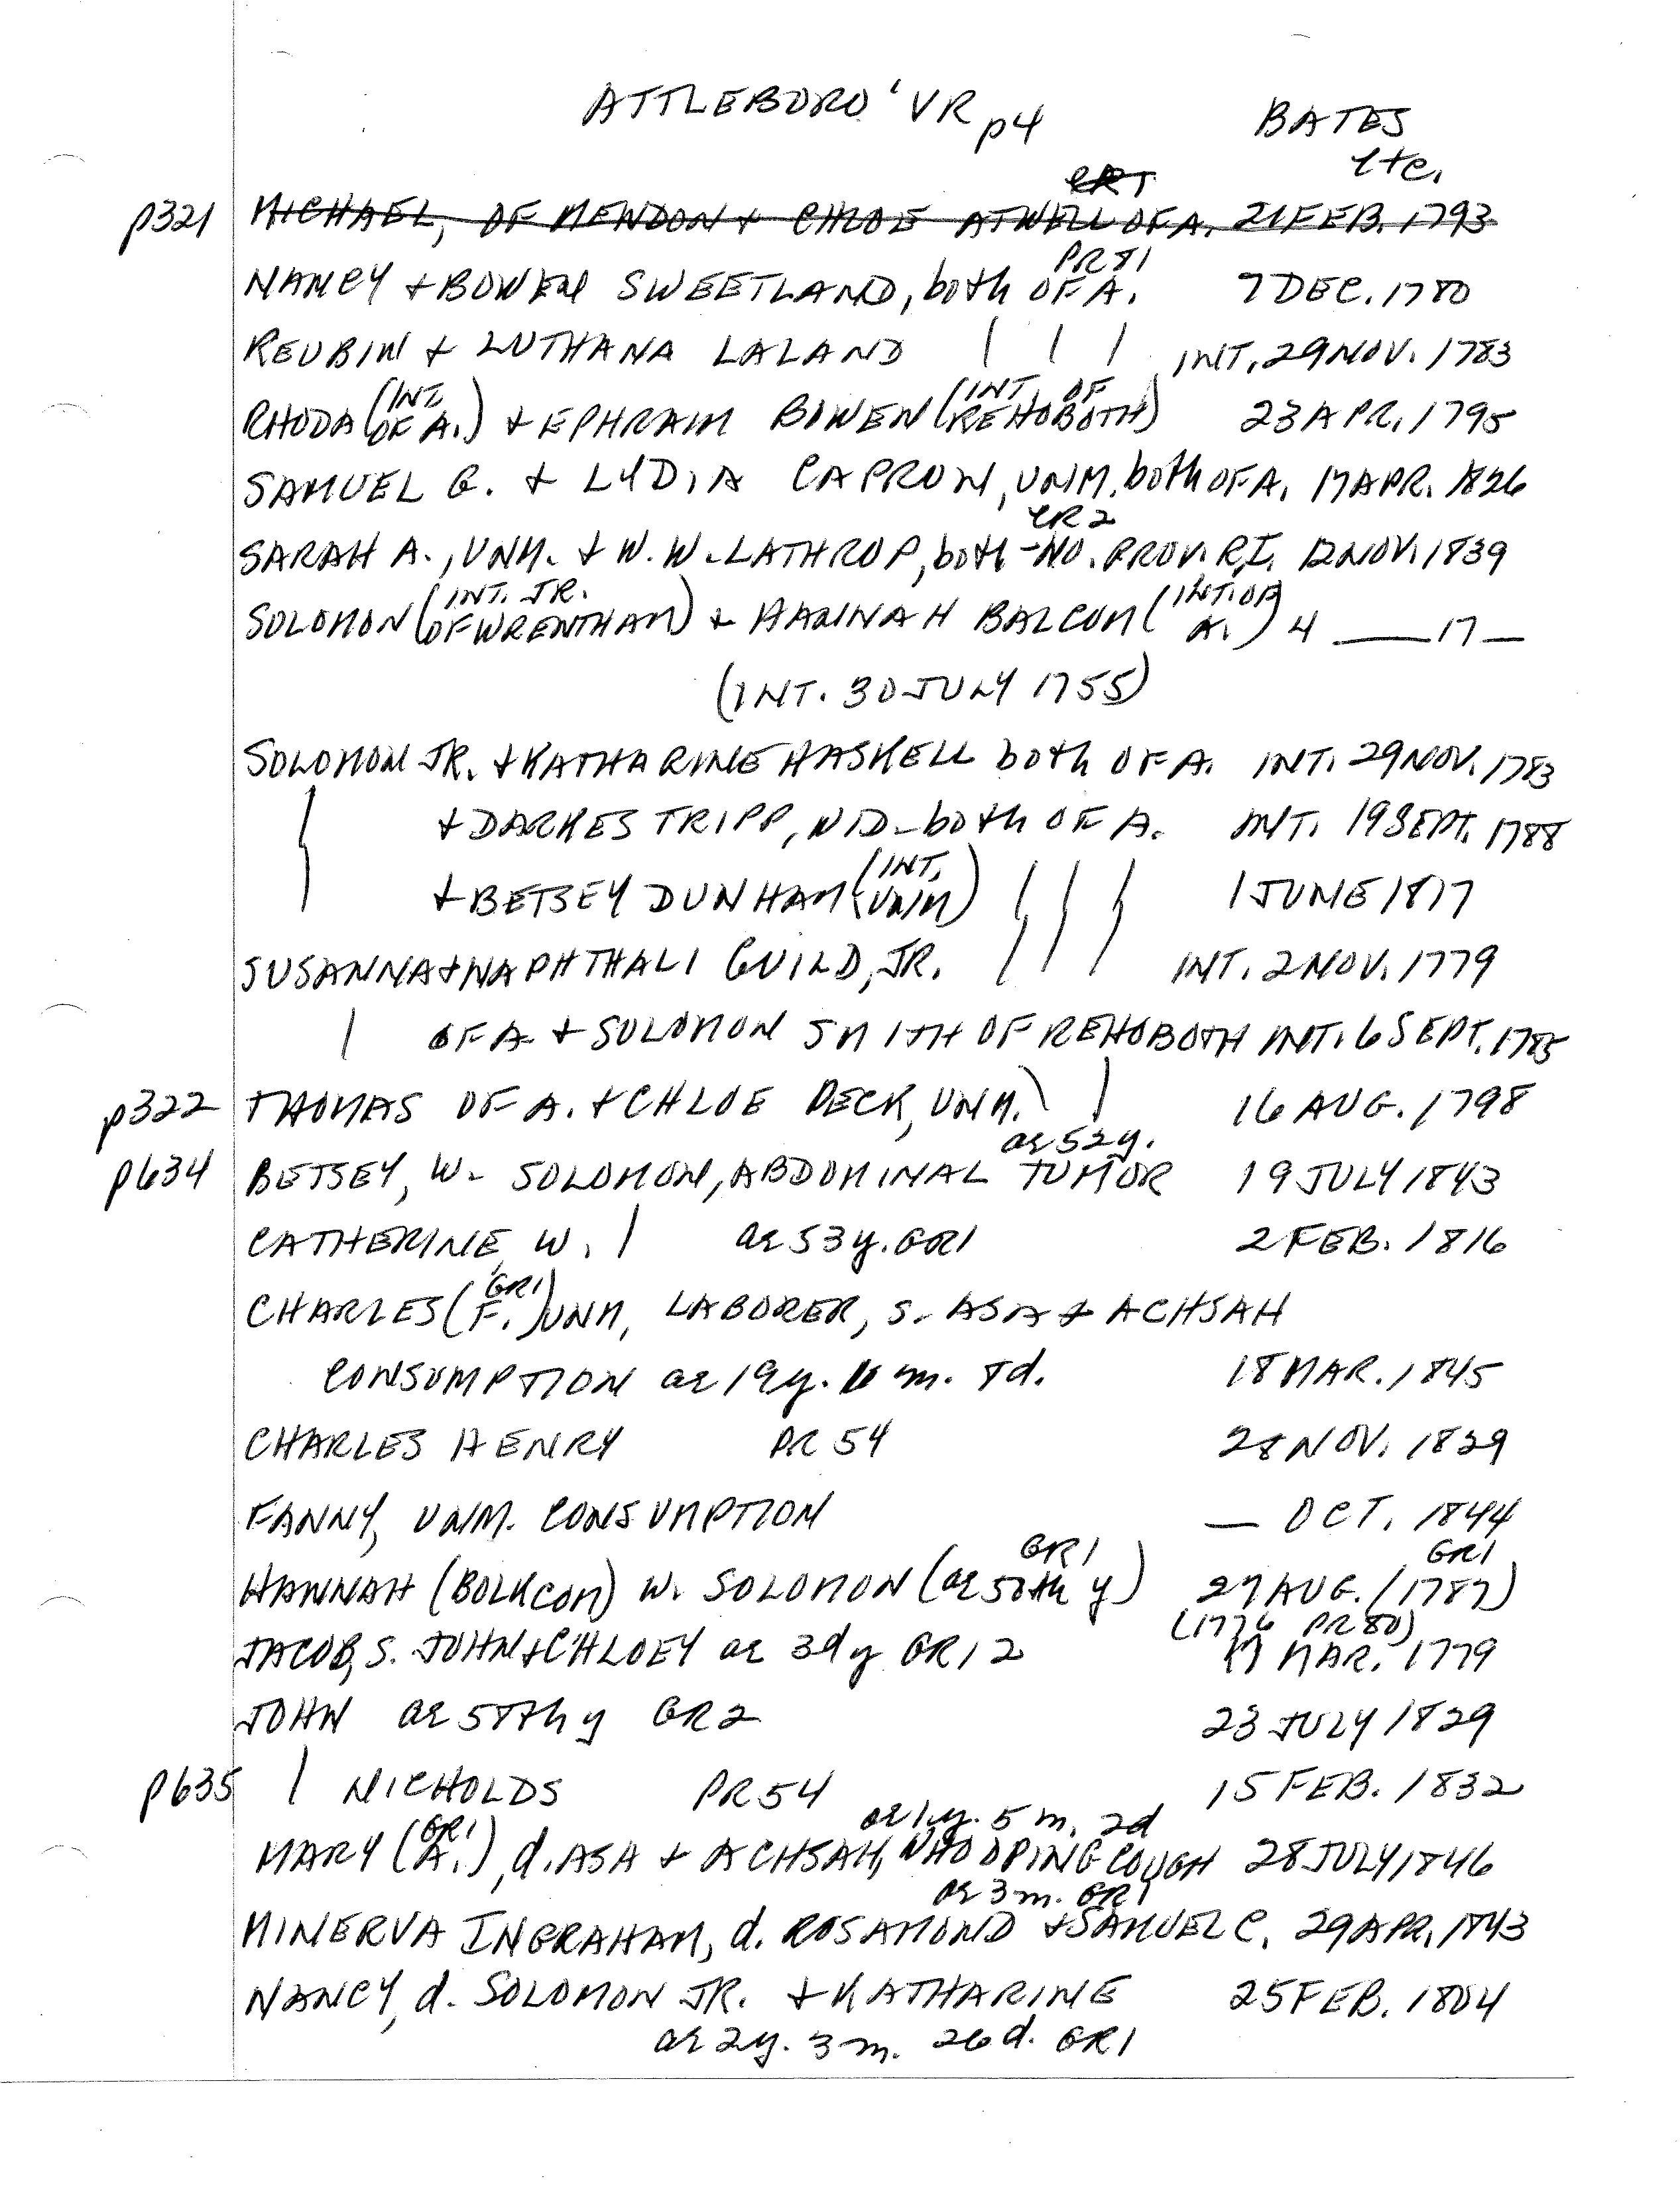 ATTLEBORO' VR p4 BATES etc.
p321 MICHAEL, OF MENDON + CHLOE ATWELL OF A. 21 FEB. 1793
PR81
NANCY + BOWEN SWEETLAND, both OF A. 7 DEC. 1780
REUBIN + LUTHANA LALAND | | | INT. 29 NOV. 1783
RHODA (INT. OF A.) + EPHRAIM BOWEN (INT. OF REHOBOTH) 23 APR. 1795
SAMUEL G. + LYDIA CAPRON, UNM. both OF A. 17 APR. 1826
CR2
SARAH A., UNM. + W. W. LATHROP, both - NO. PROV. R.I. 12 NOV. 1839
SOLOMON (INT. JR. OF WRENTHAM) + HANNAH BALCOM (INT. OF A.) 4 ___ 17 _
(INT. 30 JULY 1755)
SOLOMON JR. + KATHARINE HASKELL both OF A. INT. 29 NOV. 1783
+ DARKES TRIPP, WID - both OF A. INT. 19 SEPT. 1788
+ BETSEY DUNHAM (INT. UNM) 1 JUNE 1817
SUSANNA + NAPHTHALI GUILD, JR. INT. 2 NOV. 1779
| OF A + SOLOMON SMITH OF REHOBOTH INT. 6 SEPT. 1785
p322 THOMAS OF A. + CHLOE PECK, UNM. | | 16 AUG. 1798
ae 52y.
p634 BETSEY, W. SOLOMON, ABDOMINAL TUMOR 19 JULY 1843
CATHERINE, W. | ae 53y. GR1 2 FEB. 1816
CHARLES (F. GR1) UNM, LABORER, S. ASA + ACHSAH
CONSUMPTION ae 19y. m. 8d. 18 MAR. 1845
CHARLES HENRY PR 54 28 NOV. 1829
FANNY, UNM. CONSUMPTION _ OCT. 1844
HANNAH (BOLKCOM) W. SOLOMON (ae 50th y GR1) 27 AUG. (1787 GR1)
(1776 PR 80)
JACOB, S. JOHN + CHLOEY ae 3d y GR12 17 MAR. 1779
JOHN ae 58th y GR2 23 JULY 1829
p635 | NICHOLDS PR 54 15 FEB. 1832
ae 1y. 5 m. 2d
MARY (A. GR1), d. ASA + ACHSAH, WHOOPING COUGH 28 JULY 1846
ae 3 m. GR1
MINERVA INGRAHAM, d. ROSAMOND + SAMUEL C. 29 APR. 1843
NANCY, d. SOLOMON JR. + KATHARINE 25 FEB. 1804
ae 2y. 3 m. 26d. GR1